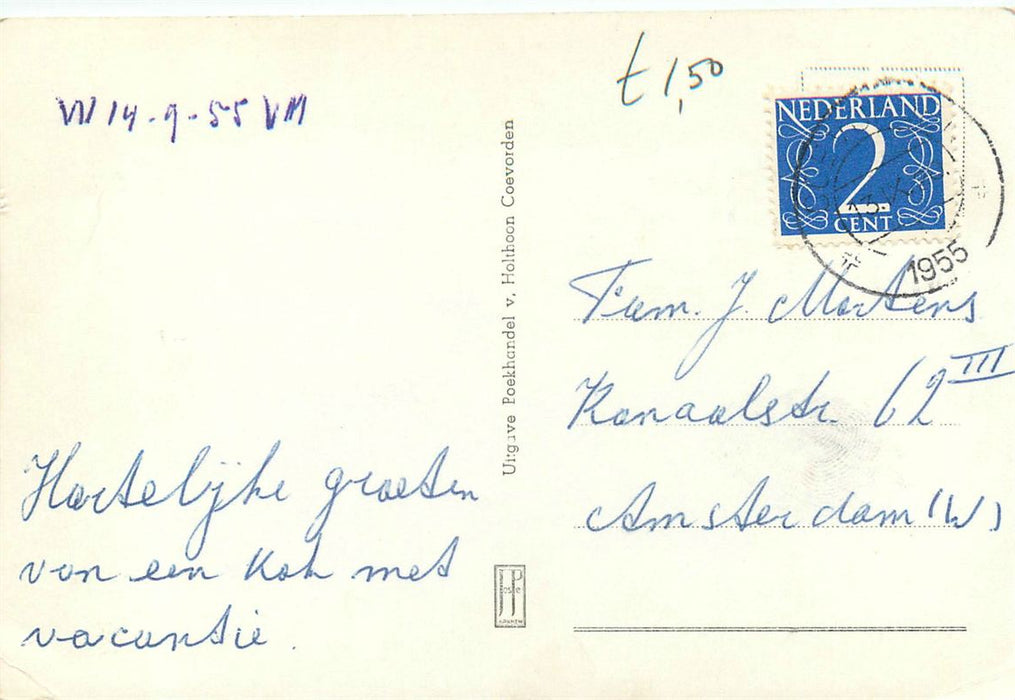 VM 14-9-55 VM
Hartelijke groeten
van een kok met
vacantie.
Uitgave Poekhandel v. Holthoon Coevorden
JP
1,50
NEDERLAND
2
CENT
1955
Fam. J. Martens
Kanaalstr. 62 III
Amsterdam (W)